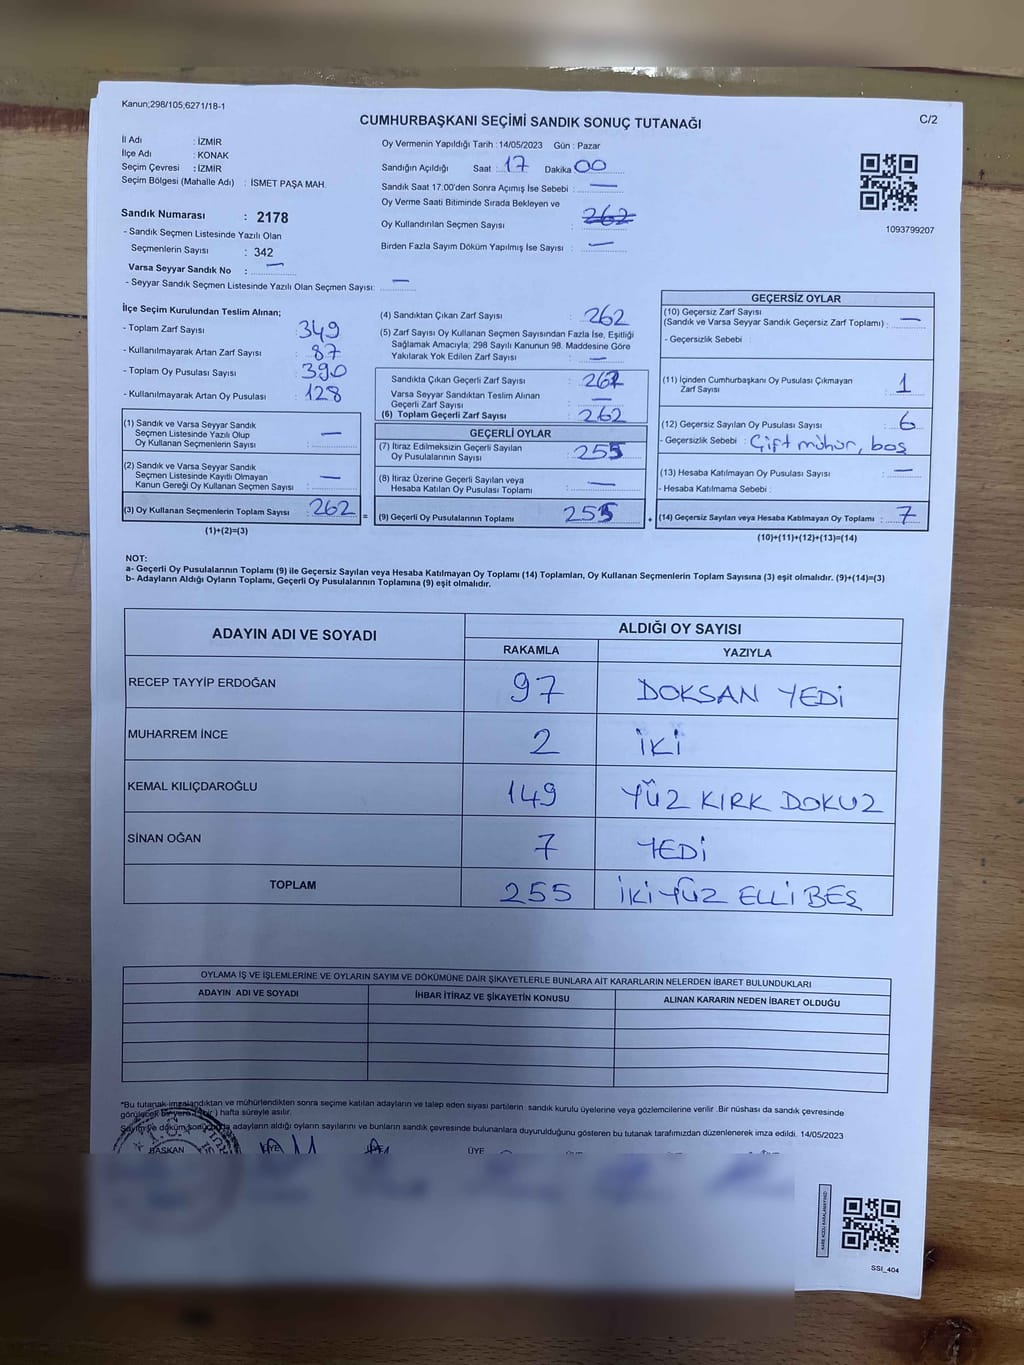 Kanun;298/105;6271/18-1
C/2
CUMHURBAŞKANI SEÇİMİ SANDIK SONUÇ TUTANAĞI
İl Adı : İZMİR
İlçe Adı : KONAK
Seçim Çevresi : İZMİR
Seçim Bölgesi (Mahalle Adı) : İSMET PAŞA MAH.
Sandık Numarası : 2178
- Sandık Seçmen Listesinde Yazılı Olan
Seçmenlerin Sayısı : 342
Varsa Seyyar Sandık No : —
- Seyyar Sandık Seçmen Listesinde Yazılı Olan Seçmen Sayısı: —
Oy Vermenin Yapıldığı Tarih : 14/05/2023 Gün : Pazar
Sandığın Açıldığı Saat : 17 Dakika 00
Sandık Saat 17.00'den Sonra Açımış İse Sebebi : —
Oy Verme Saati Bitiminde Sırada Bekleyen ve
Oy Kullandırılan Seçmen Sayısı : 262
Birden Fazla Sayım Döküm Yapılmış İse Sayısı : —
1093799207
İlçe Seçim Kurulundan Teslim Alınan;
- Toplam Zarf Sayısı : 349
- Kullanılmayarak Artan Zarf Sayısı : 87
- Toplam Oy Pusulası Sayısı : 390
- Kullanılmayarak Artan Oy Pusulası : 128
(1) Sandık ve Varsa Seyyar Sandık
Seçmen Listesinde Yazılı Olup
Oy Kullanan Seçmenlerin Sayısı : —
(2) Sandık ve Varsa Seyyar Sandık
Seçmen Listesinde Kayıtlı Olmayan
Kanun Gereği Oy Kullanan Seçmen Sayısı : —
(3) Oy Kullanan Seçmenlerin Toplam Sayısı : 262
(1)+(2)=(3)
(4) Sandıktan Çıkan Zarf Sayısı : 262
(5) Zarf Sayısı Oy Kullanan Seçmen Sayısından Fazla İse, Eşitliği
Sağlamak Amacıyla; 298 Sayılı Kanunun 98. Maddesine Göre
Yakılarak Yok Edilen Zarf Sayısı : —
Sandıkta Çıkan Geçerli Zarf Sayısı : 262
Varsa Seyyar Sandıktan Teslim Alınan
Geçerli Zarf Sayısı : —
(6) Toplam Geçerli Zarf Sayısı : 262
GEÇERLİ OYLAR
(7) İtiraz Edilmeksizin Geçerli Sayılan
Oy Pusulalarının Sayısı : 255
(8) İtiraz Üzerine Geçerli Sayılan veya
Hesaba Katılan Oy Pusulası Toplamı : —
= (9) Geçerli Oy Pusulalarının Toplamı : 255
GEÇERSİZ OYLAR
(10) Geçersiz Zarf Sayısı
(Sandık ve Varsa Seyyar Sandık Geçersiz Zarf Toplamı) : —
- Geçersizlik Sebebi :
(11) İçinden Cumhurbaşkanı Oy Pusulası Çıkmayan
Zarf Sayısı : 1
(12) Geçersiz Sayılan Oy Pusulası Sayısı : 6
- Geçersizlik Sebebi : Çift mühür, boş
(13) Hesaba Katılmayan Oy Pusulası Sayısı : —
- Hesaba Katılmama Sebebi :
+ (14) Geçersiz Sayılan veya Hesaba Katılmayan Oy Toplamı : 7
(10)+(11)+(12)+(13)=(14)
NOT:
a- Geçerli Oy Pusulalarının Toplamı (9) ile Geçersiz Sayılan veya Hesaba Katılmayan Oy Toplamı (14) Toplamları, Oy Kullanan Seçmenlerin Toplam Sayısına (3) eşit olmalıdır. (9)+(14)=(3)
b- Adayların Aldığı Oyların Toplamı, Geçerli Oy Pusulalarının Toplamına (9) eşit olmalıdır.
ADAYIN ADI VE SOYADI
ALDIĞI OY SAYISI
RAKAMLA YAZIYLA
RECEP TAYYİP ERDOĞAN 97 DOKSAN YEDİ
MUHARREM İNCE 2 İKİ
KEMAL KILIÇDAROĞLU 149 YÜZ KIRK DOKUZ
SİNAN OĞAN 7 YEDİ
TOPLAM 255 İKİ YÜZ ELLİ BEŞ
OYLAMA İŞ VE İŞLEMLERINE VE OYLARIN SAYIM VE DÖKÜMÜNE DAİR ŞİKAYETLERLE BUNLARA AİT KARARLARIN NELERDEN İBARET BULUNDUKLARI
ADAYIN ADI VE SOYADI İHBAR İTİRAZ VE ŞİKAYETİN KONUSU ALINAN KARARIN NEDEN İBARET OLDUĞU
*Bu tutanak imzalandıktan ve mühürlendikten sonra seçime katılan adayların ve talep eden siyasi partilerin sandık kurulu üyelerine veya gözlemcilerine verilir .Bir nüshası da sandık çevresinde
görülecek bir yere 1 (bir ) hafta süreyle asılır.
Sayım ve döküm sonucunda adayların aldığı oyların sayılarını ve bunların sandık çevresinde bulunanlara duyurulduğunu gösteren bu tutanak tarafımızdan düzenlenerek imza edildi. 14/05/2023
BAŞKAN ÜYE ÜYE
SSİ_404